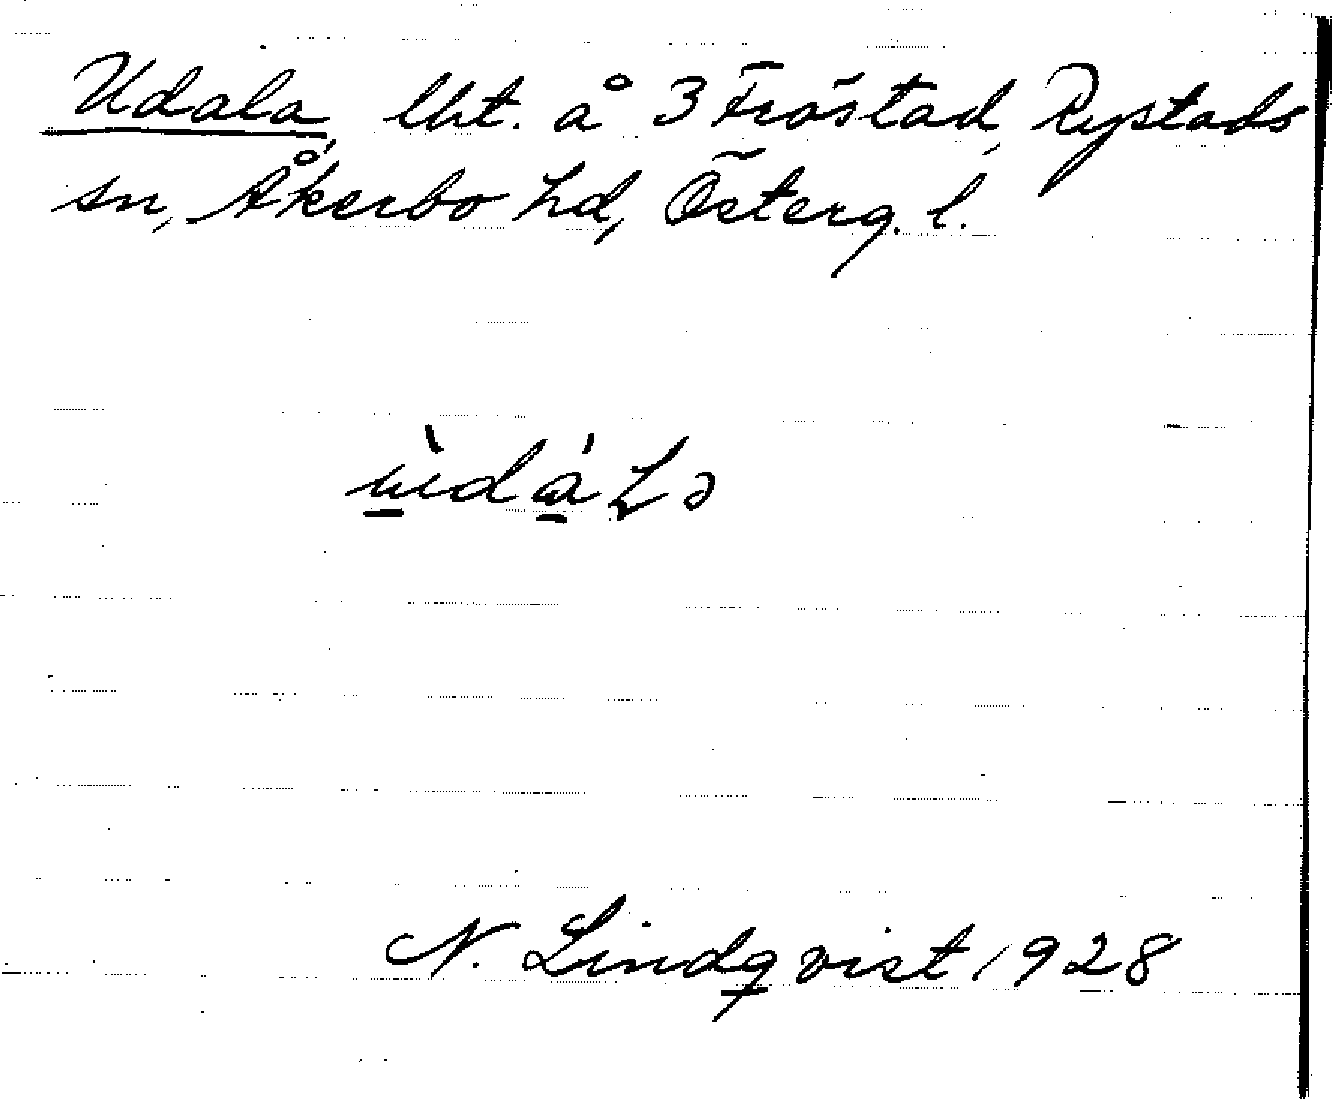 Udala, lht. å 3 Fröstad, Rystads
sn, Åkerbo hd, Österg. l.
ùdáLə
N. Lindqvist 1928